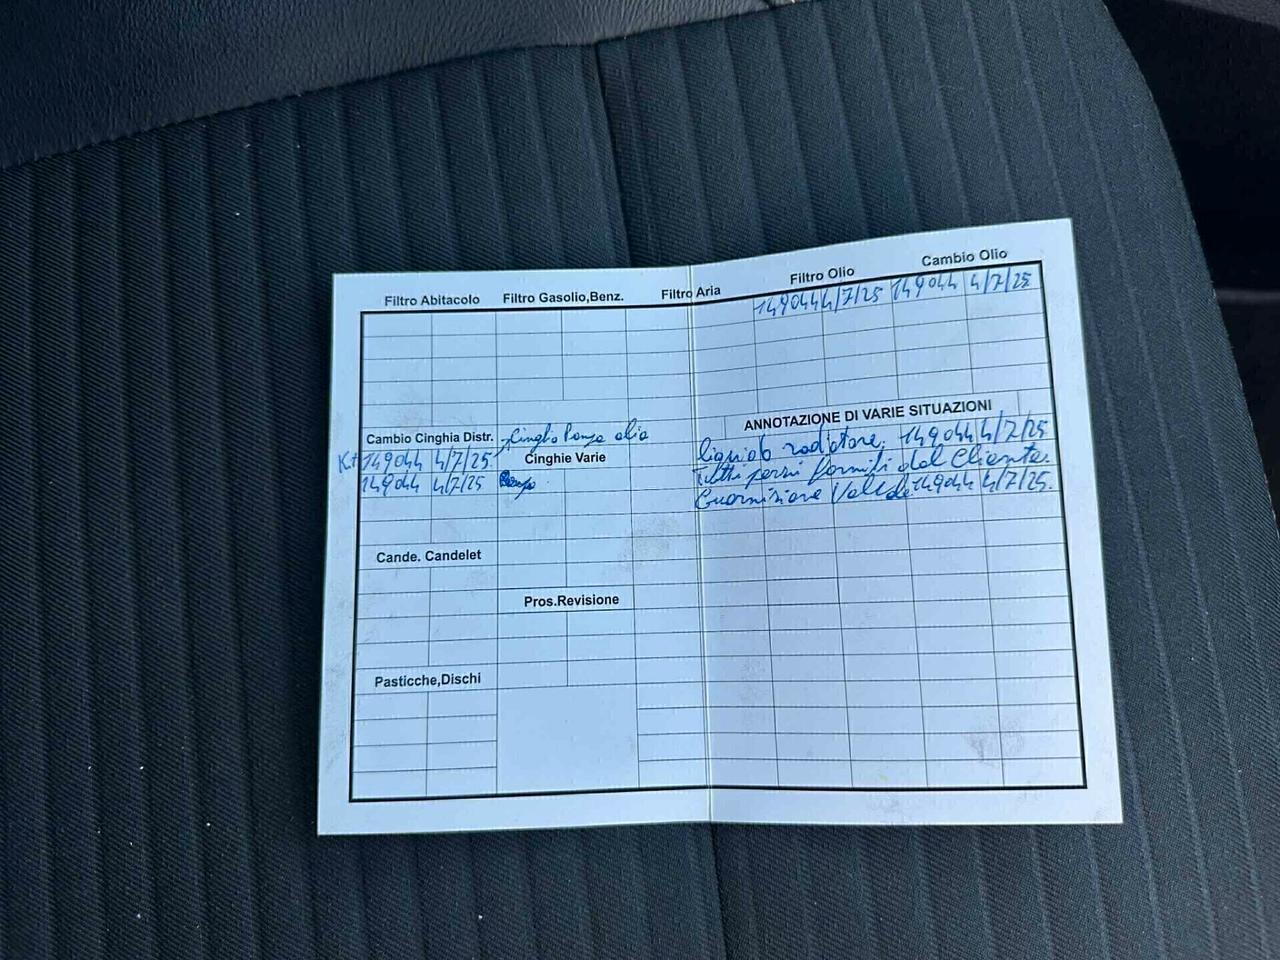 Filtro Abitacolo Filtro Gasolio,Benz. Filtro Aria Filtro Olio Cambio Olio
149044 4/7/25 149044 4/7/25
ANNOTAZIONE DI VARIE SITUAZIONI
Cambio Cinghia Distr. Cinghia Pompa olio
Kit 149044 4/7/25 Cinghie Varie liquido radiatore 149044 4/7/25
149044 4/7/25 Tutti pezzi forniti dal Cliente.
Guarnizione 149044 4/7/25.
Cande. Candelet
Pros.Revisione
Pasticche,Dischi